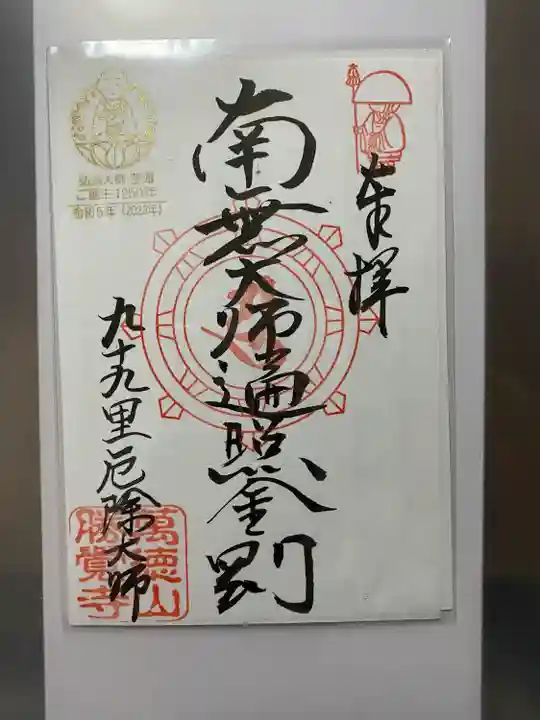 奉拝
南無大師遍照金剛
弘法大師 空海
ご誕生1250年
令和5年(2023年)
九十九里厄除大師
萬徳山
勝覚寺